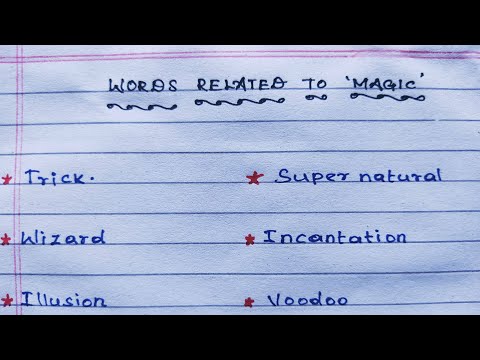 WORDS RELATED TO 'MAGIC'
Trick.
Super natural
Wizard
Incantation
Illusion
Voodoo